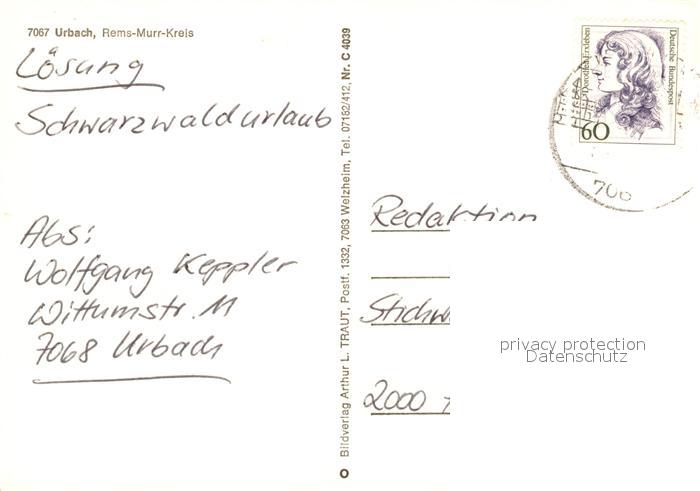 7067 Urbach, Rems-Murr-Kreis
Lösung
Schwarzwaldurlaub
Abs:
Wolfgang Keppler
Wittumstr. 11
7068 Urbach
Bildverlag Arthur L. TRAUT, Postf. 1332, 7063 Welzheim, Tel. 07182/412, Nr. C 4039
Dorothea Erxleben
Deutsche Bundespost
60
706
Redaktion
Stichw
2000
privacy protection
Datenschutz